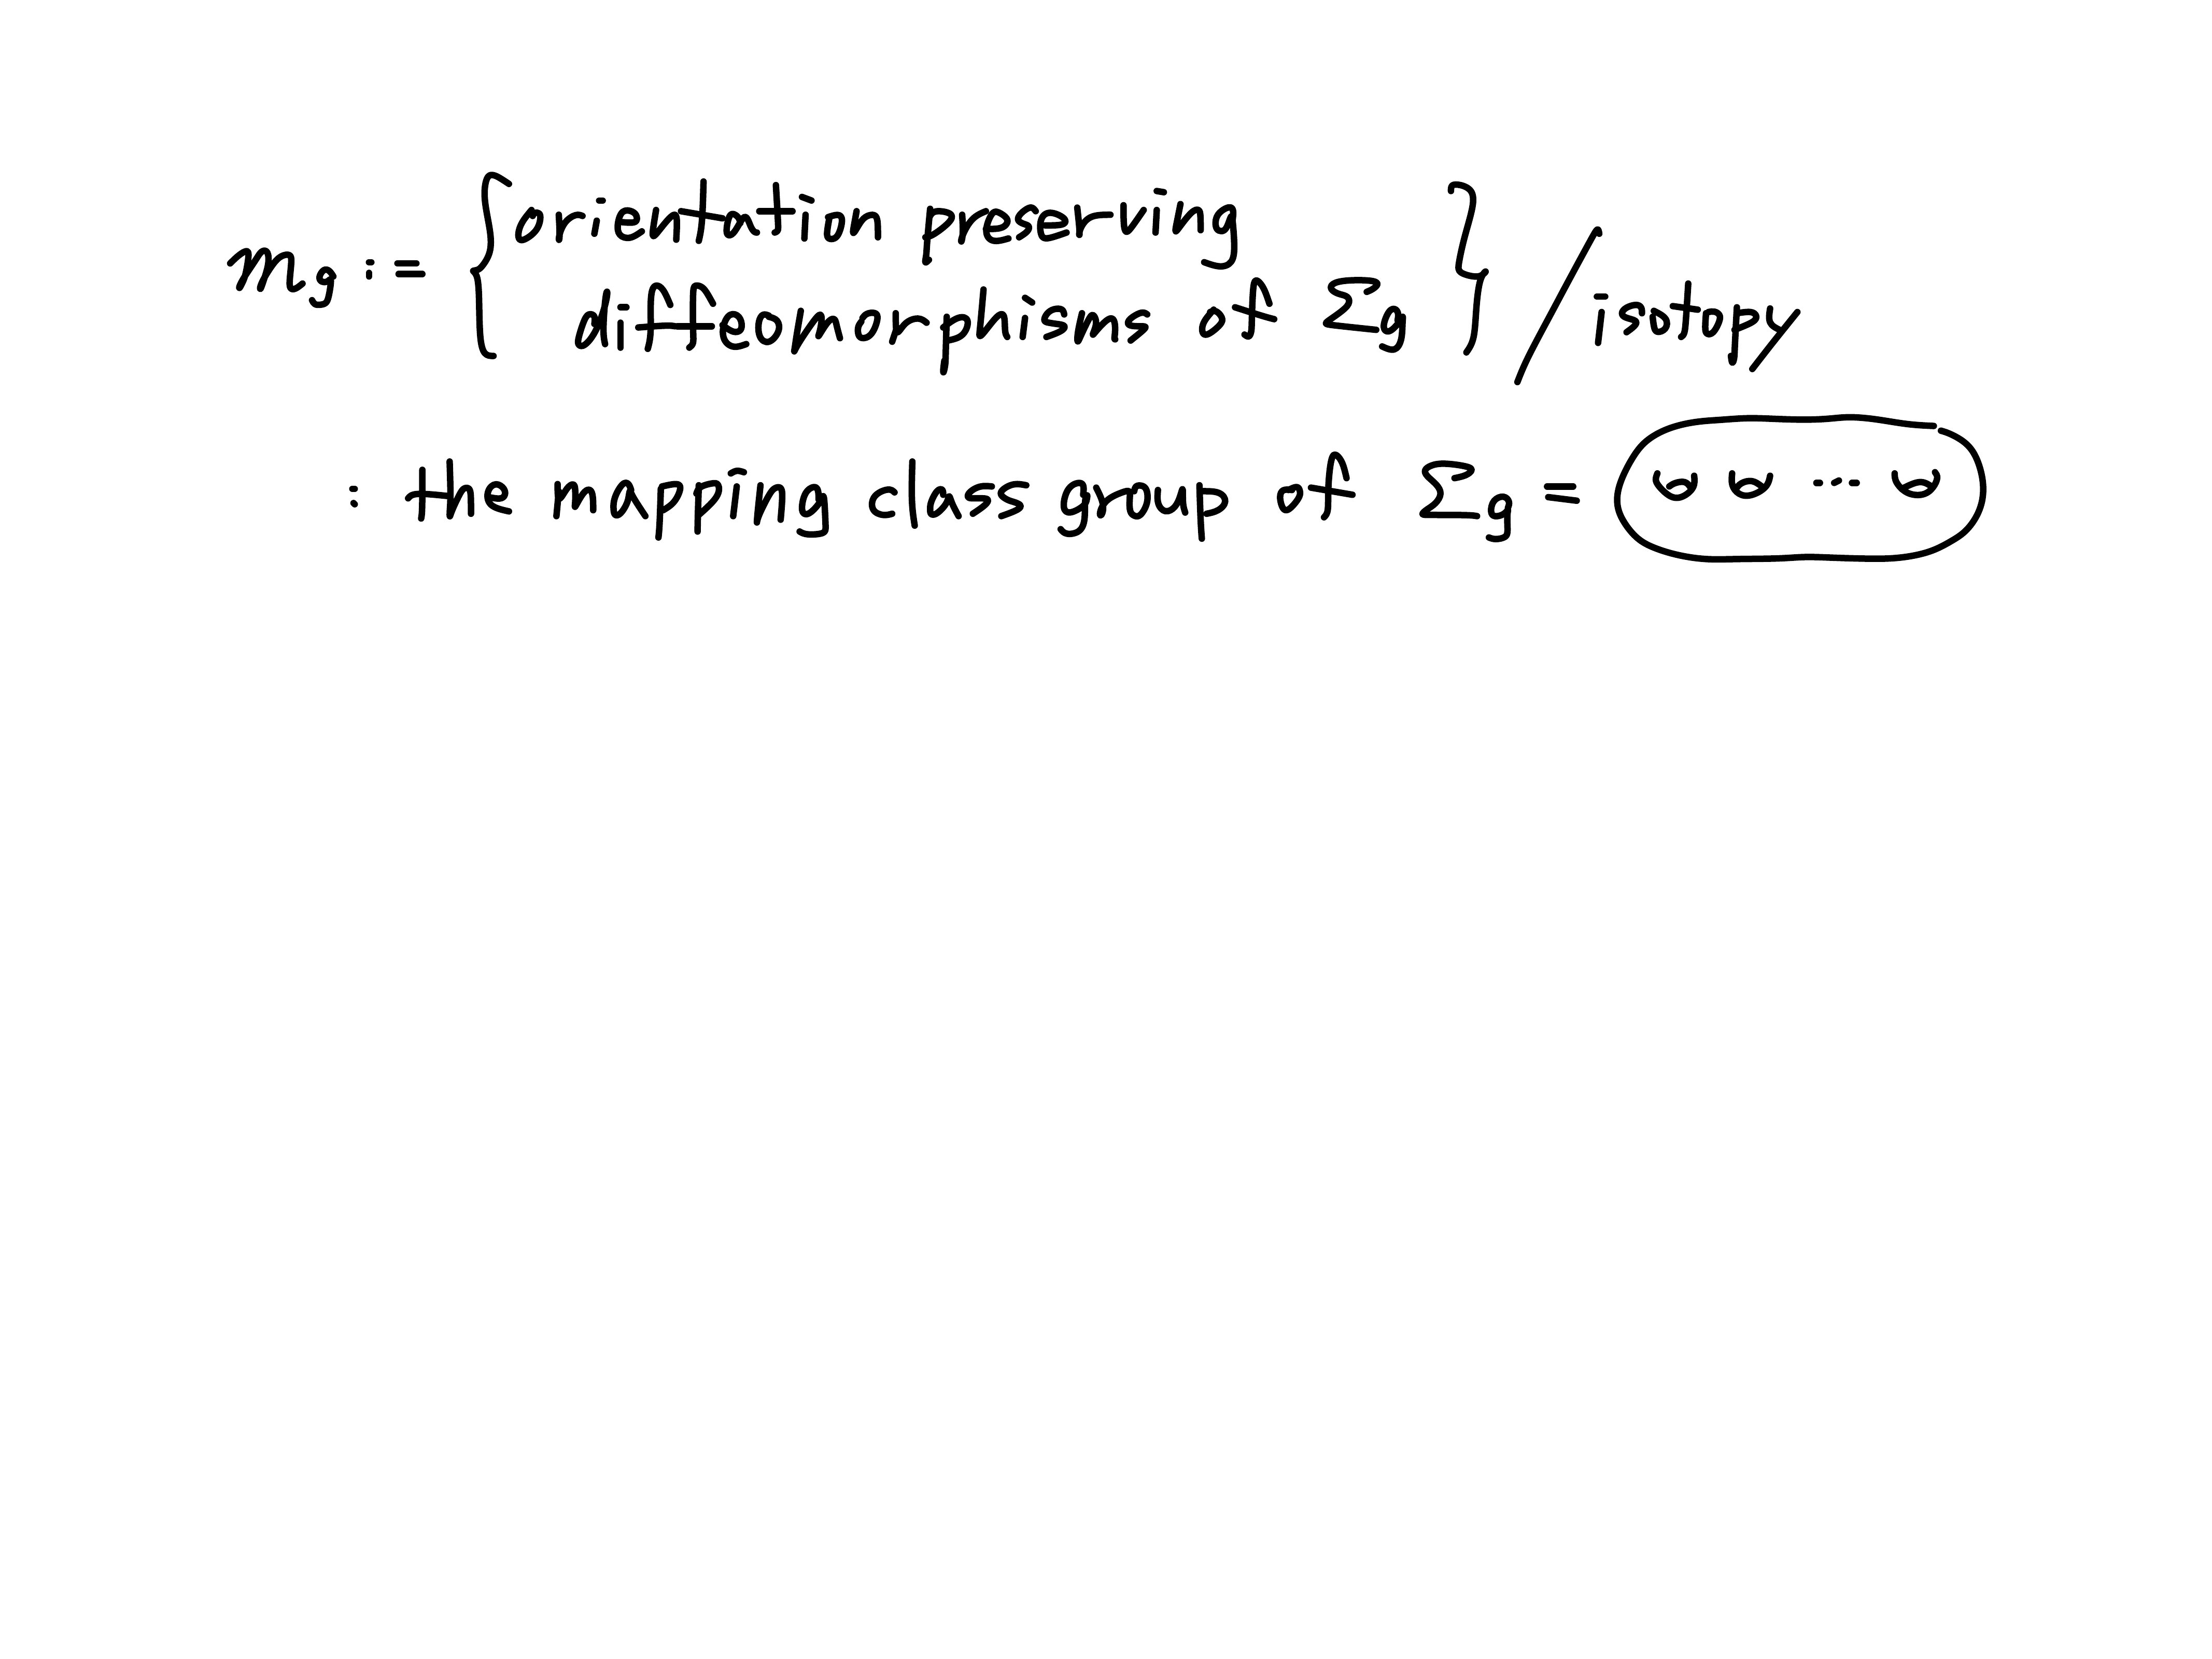 𝓜g := { orientation preserving
diffeomorphisms of Σg } / isotopy
: the mapping class group of Σg =